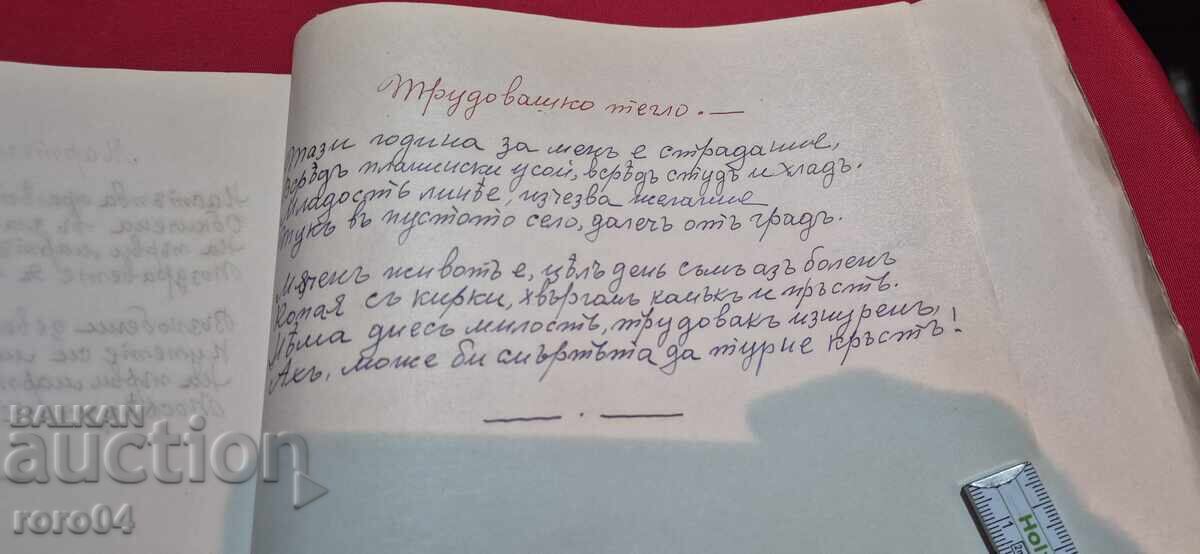 Трудовашко тегло. —
Тази година за менъ е страдание,
Всрѣдъ планински усои, всрѣдъ студъ и хладъ.
Младость линѣе, изчезва желание
Тукъ въ пустото село, далечъ отъ градъ.
Мѫченъ животъ е, цѣлъ день съмъ азъ боленъ
Копая съ кирки, хвъргамъ камъкъ и пръстъ.
Нѣма днесъ милость, трудовакъ изнуренъ,
Ахъ, може би смъртьта да турне кръстъ!
BALKAN
auction
roro04
Hol
1
2